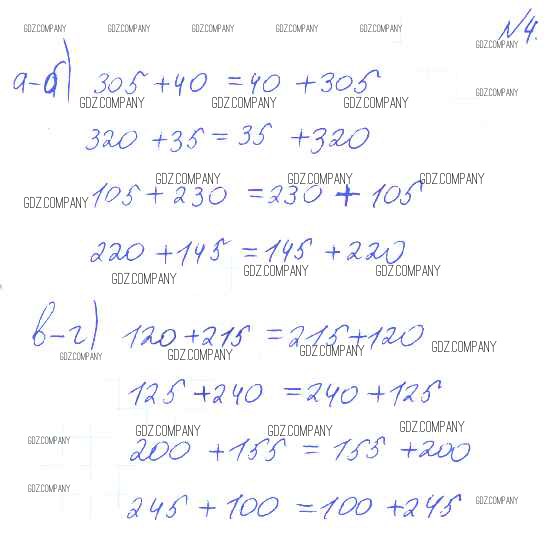 GDZ.COMPANY GDZ.COMPANY GDZ.COMPANY GDZ.COMPANY GDZ.COMPANY
№4.
GDZ.COMPANY
а-б) 305 + 40 = 40 + 305
GDZ.COMPANY
GDZ.COMPANY GDZ.COMPANY GDZ.COMPANY
320 + 35 = 35 + 320
GDZ.COMPANY GDZ.COMPANY GDZ.COMPANY
105 + 230 = 230 + 105
GDZ.COMPANY
220 + 145 = 145 + 220
GDZ.COMPANY GDZ.COMPANY GDZ.COMPANY
в-г) 120 + 215 = 215 + 120
GDZ.COMPANY GDZ.COMPANY GDZ.COMPANY GDZ.COMPANY
125 + 240 = 240 + 125
GDZ.COMPANY GDZ.COMPANY GDZ.COMPANY
GDZ.COMPANY
200 + 155 = 155 + 200
GDZ.COMPANY
245 + 100 = 100 + 245
GDZ.COMPANY